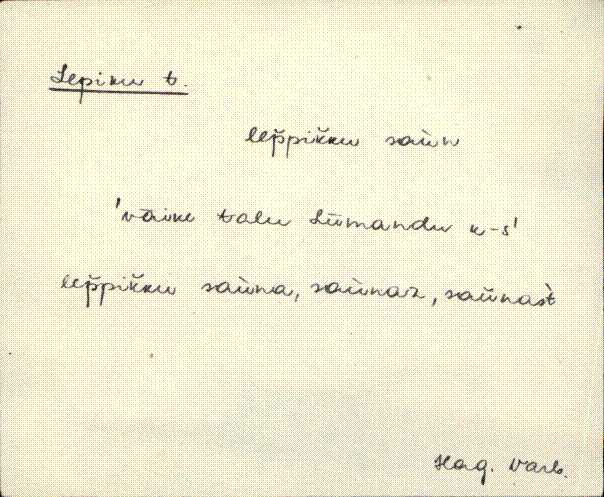 Lepiku t.
lep̆pik̆ku saùn
'väike talu Liimandu k-s'
lep̆pik̆ku saùna, saùnaz, saùnast̀
Hag. Varb.